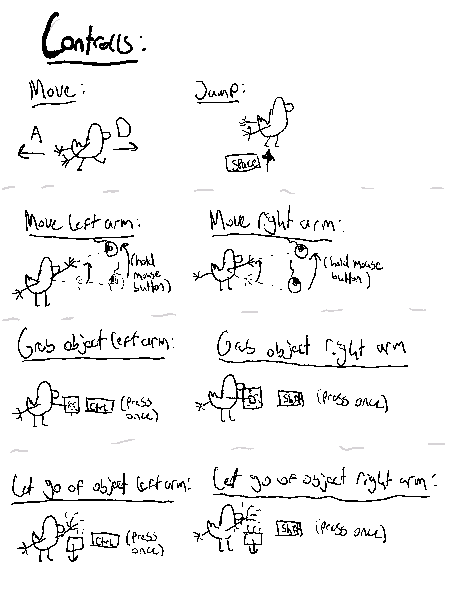 Controlls:
Move:
Jump:
A
D
Space
Move left arm:
Move right arm:
(hold
mouse
button)
(hold mouse
button)
Grab object left arm:
Grab object right arm
Ctrl
(press
once)
Shift
(press
once)
Let go of object left arm:
Let go of object right arm:
Ctrl
(press
once)
Shift
(press
once)